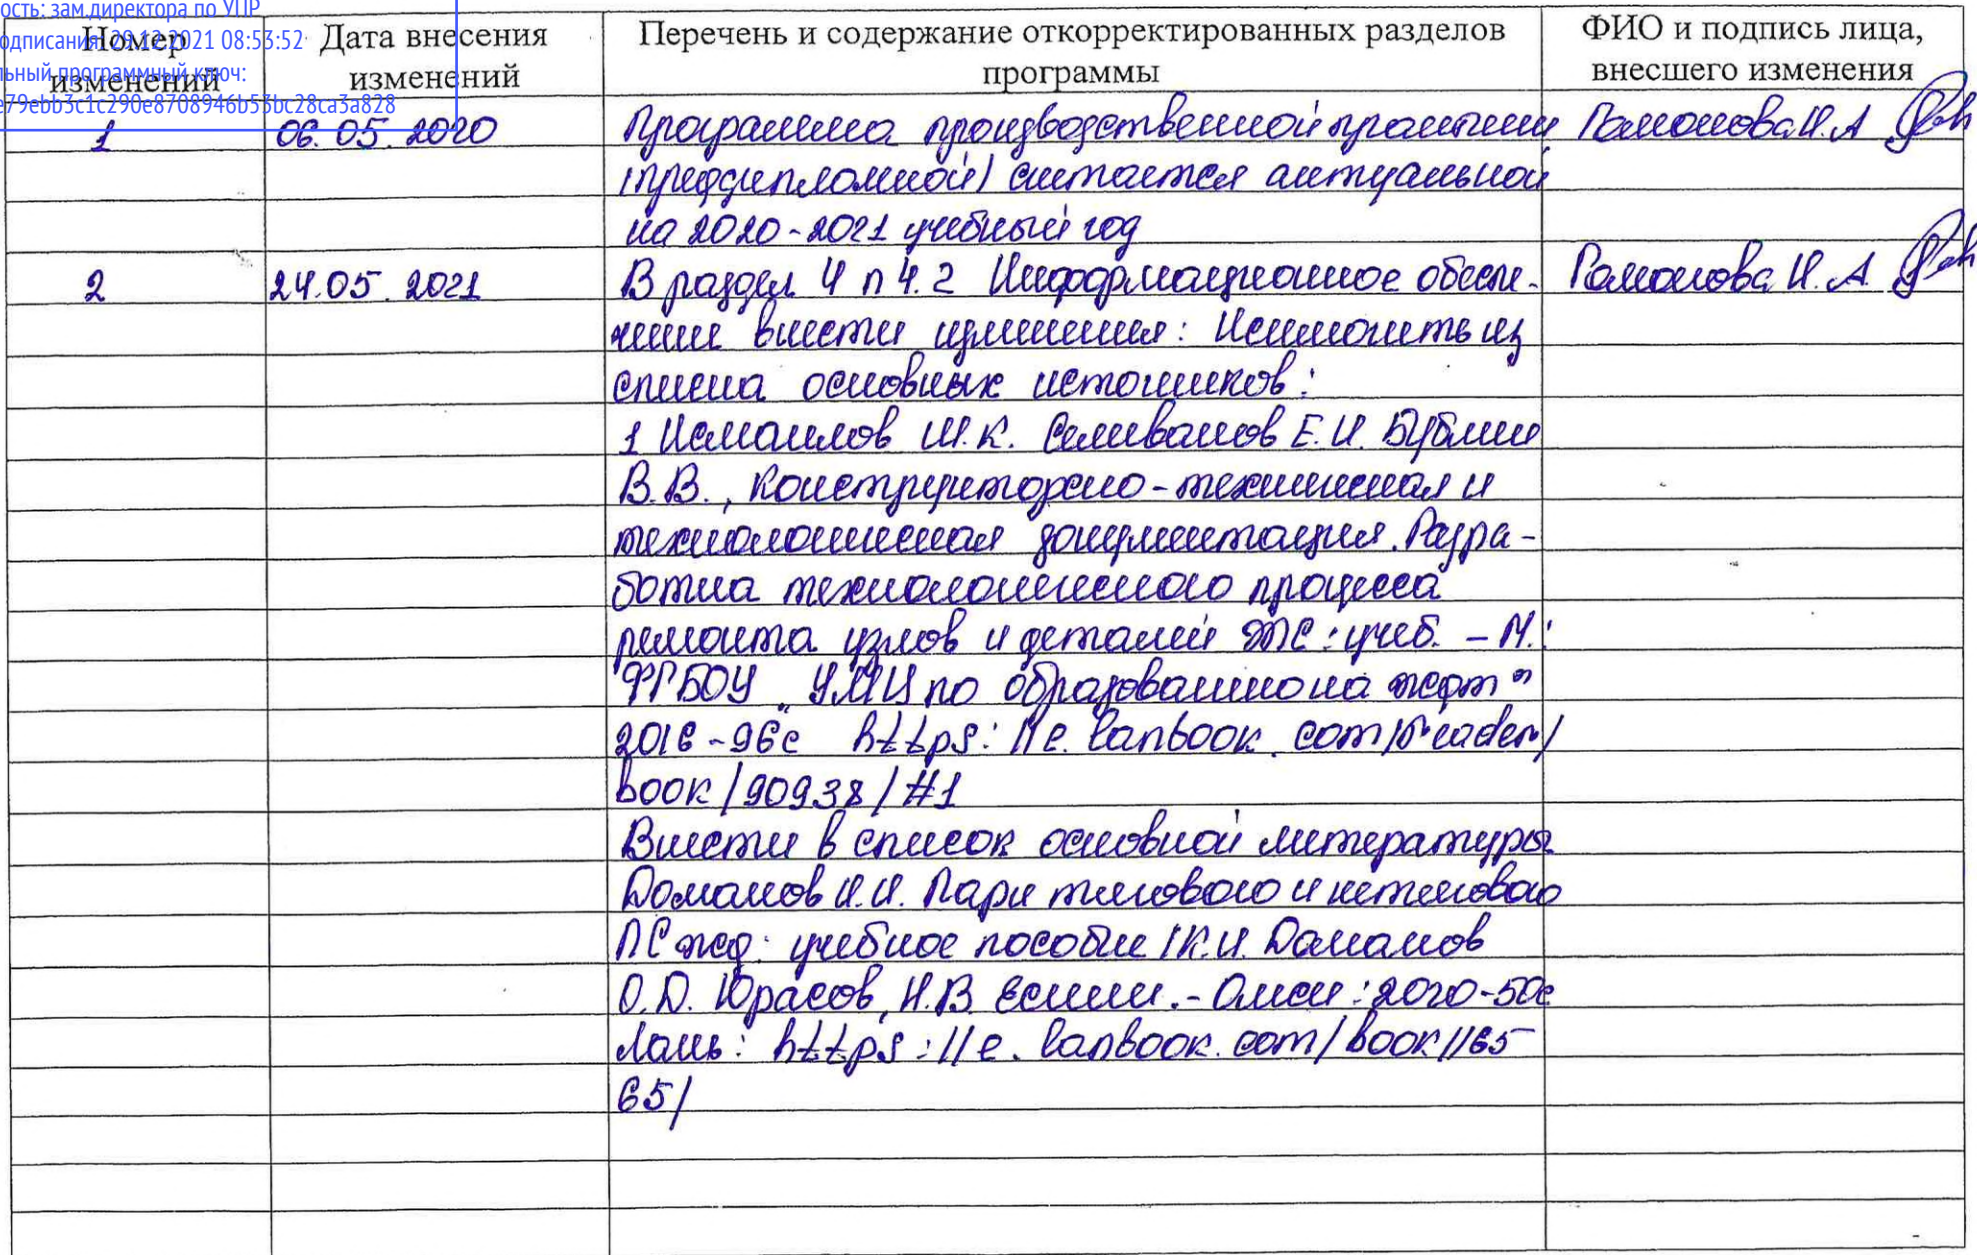 ость: зам.директора по УПР
одписания: 29.12.2021 08:53:52
льный программный ключ:
e79ebb3c1c290e8708946b53bc28ca3a828
Номер изменений
Дата внесения изменений
Перечень и содержание откорректированных разделов программы
ФИО и подпись лица, внесшего изменения
1 06.05.2020 Программа производственной практики
(преддипломной) считается актуальной
на 2020-2021 учебный год
2 24.05.2021 В раздел 4 п 4.2 Информационное обеспе-
чение внести изменения: Исключить из
списка основных источников:
1 Исмаилов Ш.К. Селиванов Е.И. Бублик
В.В., Конструкторско-техническая и
технологическая документация. Разра-
ботка технологического процесса
ремонта узлов и деталей ЭПС: учеб. - М.:
ФГБОУ "УМЦ по образованию на ждт"
2016-96с https://e.lanbook.com/reader/
book/90938/#1
Внести в список основной литературы
Доманов К.И. Парк тягового и нетягового
ПС жд: учебное пособие /К.И. Доманов
О.Д. Юрасов, Н.В. Есин.- Омск: 2020-50с
Лань: https://e.lanbook.com/book/165
65/